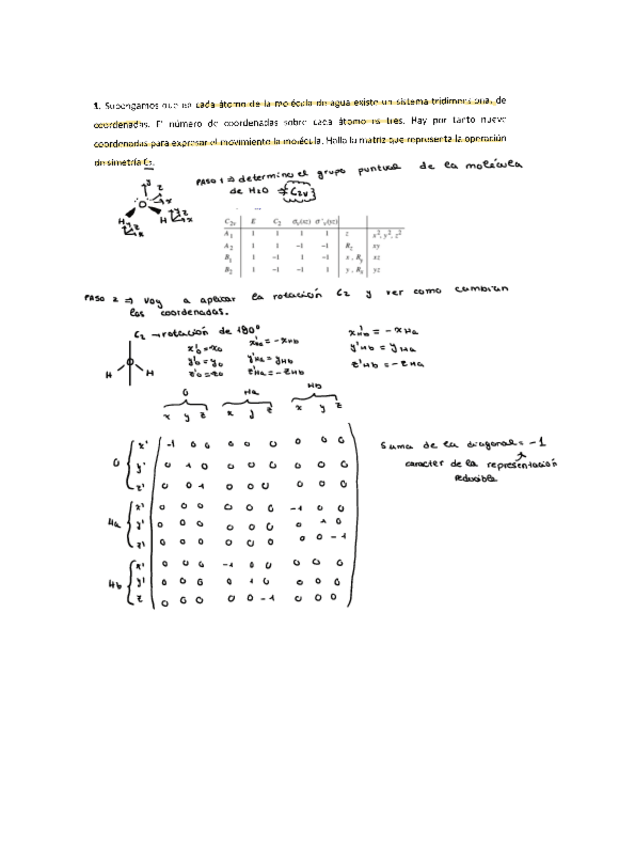 1. Supongamos que en cada átomo de la molécula de agua existe un sistema tridimensional de
coordenadas. El número de coordenadas sobre cada átomo es tres. Hay por tanto nueve
coordenadas para expresar el movimiento la molécula. Halla la matriz que representa la operación
de simetría C₂.
PASO 1 ⇒ determino el grupo puntual de la molécula
de H2O ⇒ C2v
y z
O x
H H y z
y z x x
C₂ᵥ E C₂ σᵥ(xz) σ'ᵥ(yz)
A₁ 1 1 1 1 z x², y², z²
A₂ 1 1 -1 -1 R_z xy
B₁ 1 -1 1 -1 x, R_y xz
B₂ 1 -1 -1 1 y, R_x yz
PASO 2 ⇒ Voy a aplicar la rotación C2 y ver como cambian
las coordenadas.
C2 → rotación de 180°
x'o = -xo x'Ha = -xHb x'Hb = -xHa
y'o = yo y'Ha = yHb y'Hb = yHa
z'o = zo z'Ha = -zHb z'Hb = -zHa
O
H H
O Ha Hb
x y z x y z x y z
O x' -1 0 0 0 0 0 0 0 0
y' 0 1 0 0 0 0 0 0 0
z' 0 0 1 0 0 0 0 0 0
Ha x' 0 0 0 0 0 0 -1 0 0
y' 0 0 0 0 0 0 0 1 0
z' 0 0 0 0 0 0 0 0 -1
Hb x' 0 0 0 -1 0 0 0 0 0
y' 0 0 0 0 1 0 0 0 0
z 0 0 0 0 0 -1 0 0 0
Suma de la diagonal = -1
caracter de la representación
reducible